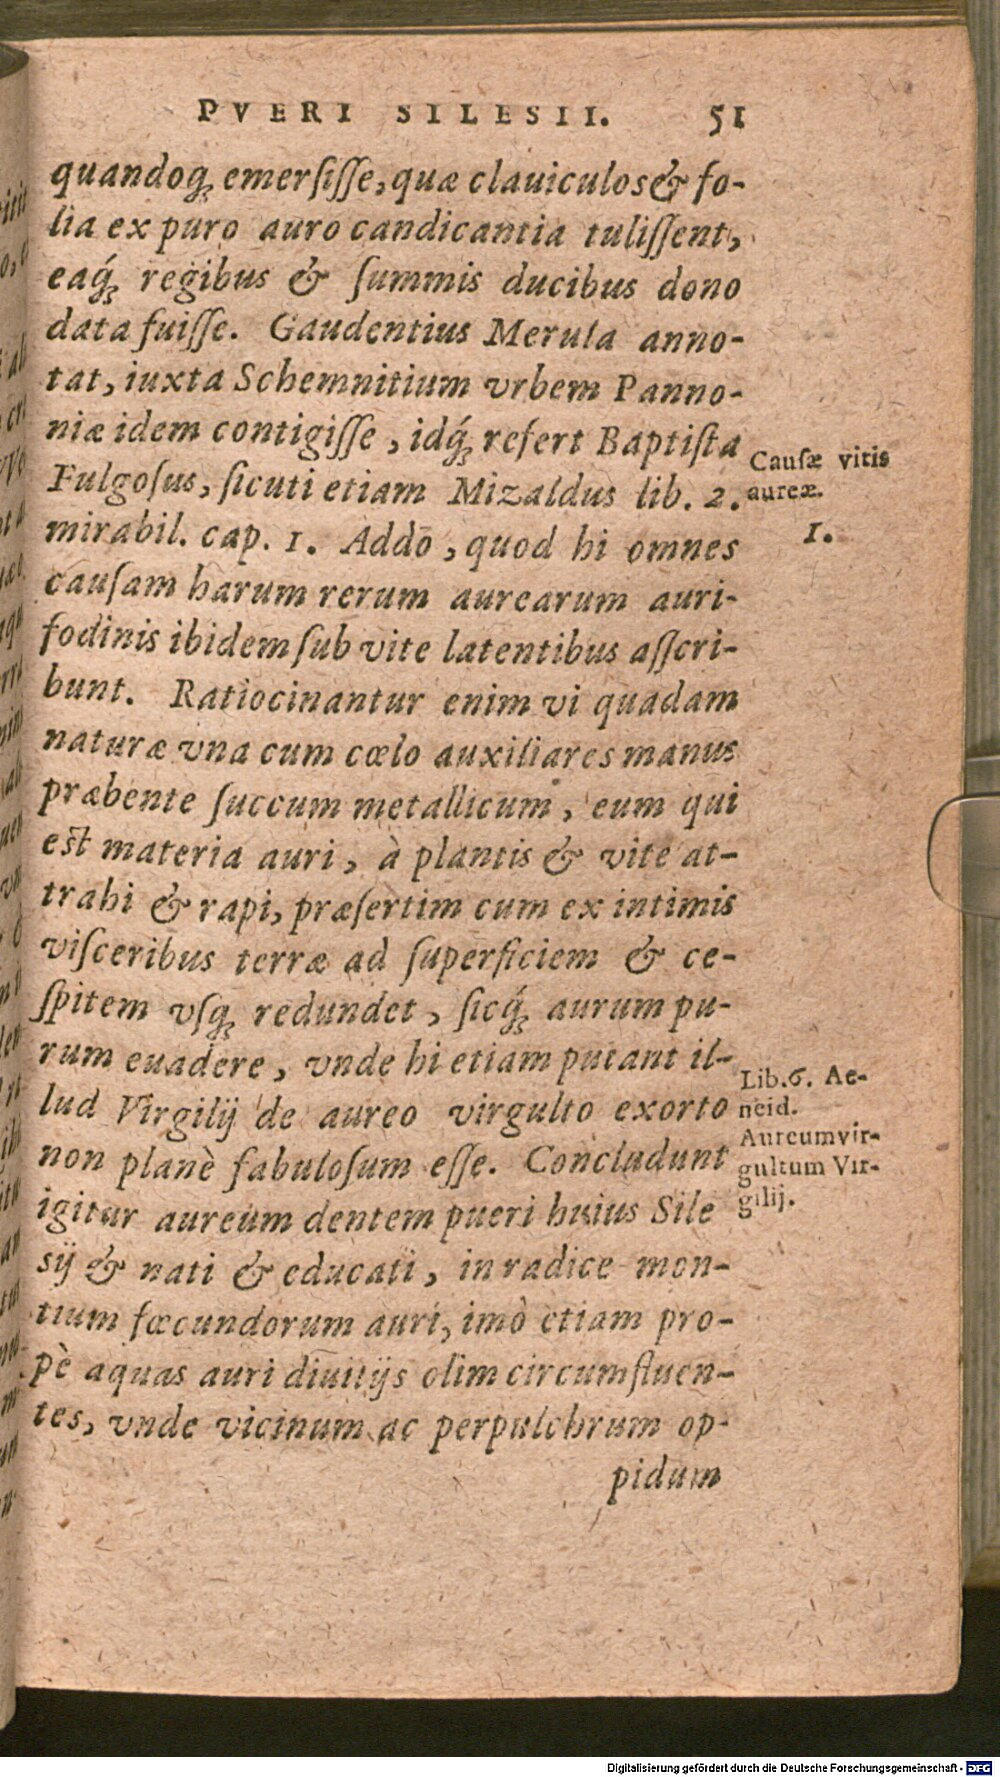 PVERI SILESII. 51
quandoq́; emerſiſſe, quæ clauiculos & fo-
lia ex puro auro candicantia tuliſſent,
eaq́; regibus & ſummis ducibus dono
data fuiſſe. Gaudentius Merula anno-
tat, iuxta Schemnitium vrbem Panno-
niæ idem contigiſſe, idq́; refert Baptiſta
Fulgoſus, ſicuti etiam Mizaldus lib. 2.
mirabil. cap. 1. Addō, quod hi omnes
cauſam harum rerum aurearum auri-
fodinis ibidem ſub vite latentibus aſſcri-
bunt. Ratiocinantur enim vi quadam
naturæ vna cum cœlo auxiliares manus
præbente ſuccum metallicum, eum qui
est materia auri, à plantis & vite at-
trahi & rapi, præſertim cum ex intimis
viſceribus terræ ad ſuperficiem & ce-
ſpitem vſq; redundet, ſicq́; aurum pu-
rum euadere, vnde hi etiam putant il-
lud Virgilij de aureo virgulto exorto
non planè fabuloſum eſſe. Concludunt
igitur aureum dentem pueri huius Sile
sij & nati & educati, in radice mon-
tium fœcundorum auri, imò etiam pro-
pè aquas auri diuitijs olim circumfluen-
tes, vnde vicinum ac perpulchrum op-
pidum
Cauſæ vitis
aureæ.
1.
Lib.6. Ae-
neid.
Aureum vir-
gultum Vir-
gilij.
Digitalisierung gefördert durch die Deutsche Forschungsgemeinschaft - DFG